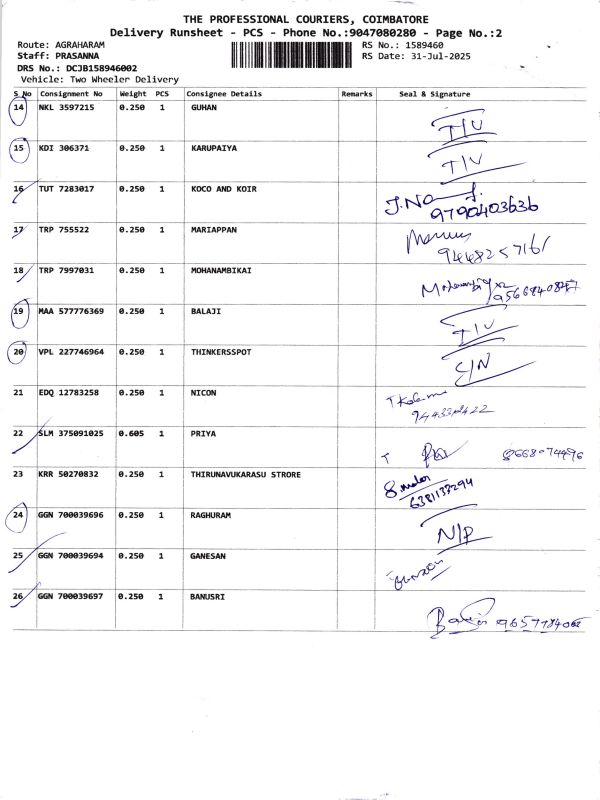 THE PROFESSIONAL COURIERS, COIMBATORE
Delivery Runsheet - PCS - Phone No.:9047080280 - Page No.:2
Route: AGRAHARAM RS No.: 1589460
Staff: PRASANNA RS Date: 31-Jul-2025
DRS No.: DCJB158946002
Vehicle: Two Wheeler Delivery
S No Consignment No Weight PCS Consignee Details Remarks Seal & Signature
14 NKL 3597215 0.250 1 GUHAN
T/U
15 KDI 306371 0.250 1 KARUPAIYA
T/U
16 TUT 7283017 0.250 1 KOCO AND KOIR
9790403636
17 TRP 755522 0.250 1 MARIAPPAN
9448257161
18 TRP 7997031 0.250 1 MOHANAMBIKAI
19 MAA 577776369 0.250 1 BALAJI
T/U
20 VPL 227746964 0.250 1 THINKERSSPOT
C/N
21 EDQ 12783258 0.250 1 NICON
22 SLM 375091025 0.605 1 PRIYA
T
23 KRR 50270832 0.250 1 THIRUNAVUKARASU STRORE
6381137294
24 GGN 700039696 0.250 1 RAGHURAM
N/P
25 GGN 700039694 0.250 1 GANESAN
26 GGN 700039697 0.250 1 BANUSRI